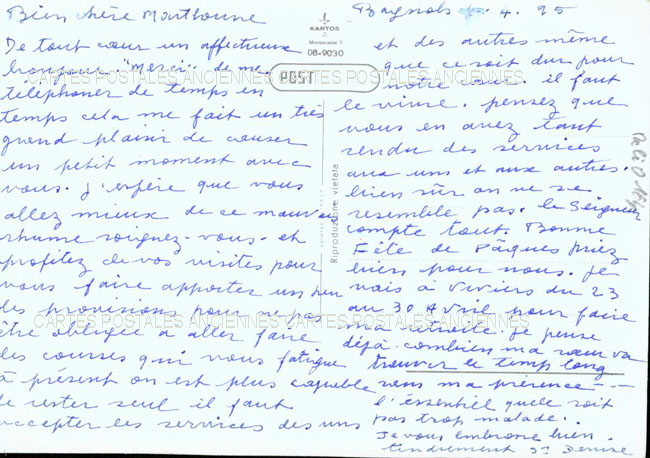 Bien chère Marthoune
De tout cœur un affectueux
bonjour "Merci" de me
telephoner de temps en
temps cela me fait un très
grand plaisir de causer
un petit moment avec
vous. J'espère que vous
allez mieux de ce mauvais
rhume soignez-vous. et
profitez de vos visites pour
vous faire apporter un peu
des provisions pour ne pas
être obligée a aller faire
des courses qui vous fatigue
à présent on est plus capable
de rester seul il faut
accepter les services des uns
KARTOS
08-9030
POST
Riproduzione vietata
Bagnols 4. 95
et des autres même
que ce soit dur pour
notre cœur. il faut
le vivre. pensez que
vous en avez tant
rendu des services
aux uns et aux autres.
bien sûr on ne se
resemble pas. le Seigneur
compte tout. Bonne
Fête de Pâques priez
bien pour nous. Je
vais à Viviers du 23
au 30 Avril pour faire
ma retraite. je pense
déjà combien ma sœur va
trouver le temps long
sans ma présence --
l'éssentiel quelle soit
pas trop malade.
Je vous embrasse bien
tendrement Sr Denise
CARTES POSTALES ANCIENNES CARTES POSTALES ANCIENNES
CARTES POSTALES ANCIENNES CARTES POSTALES ANCIENNES